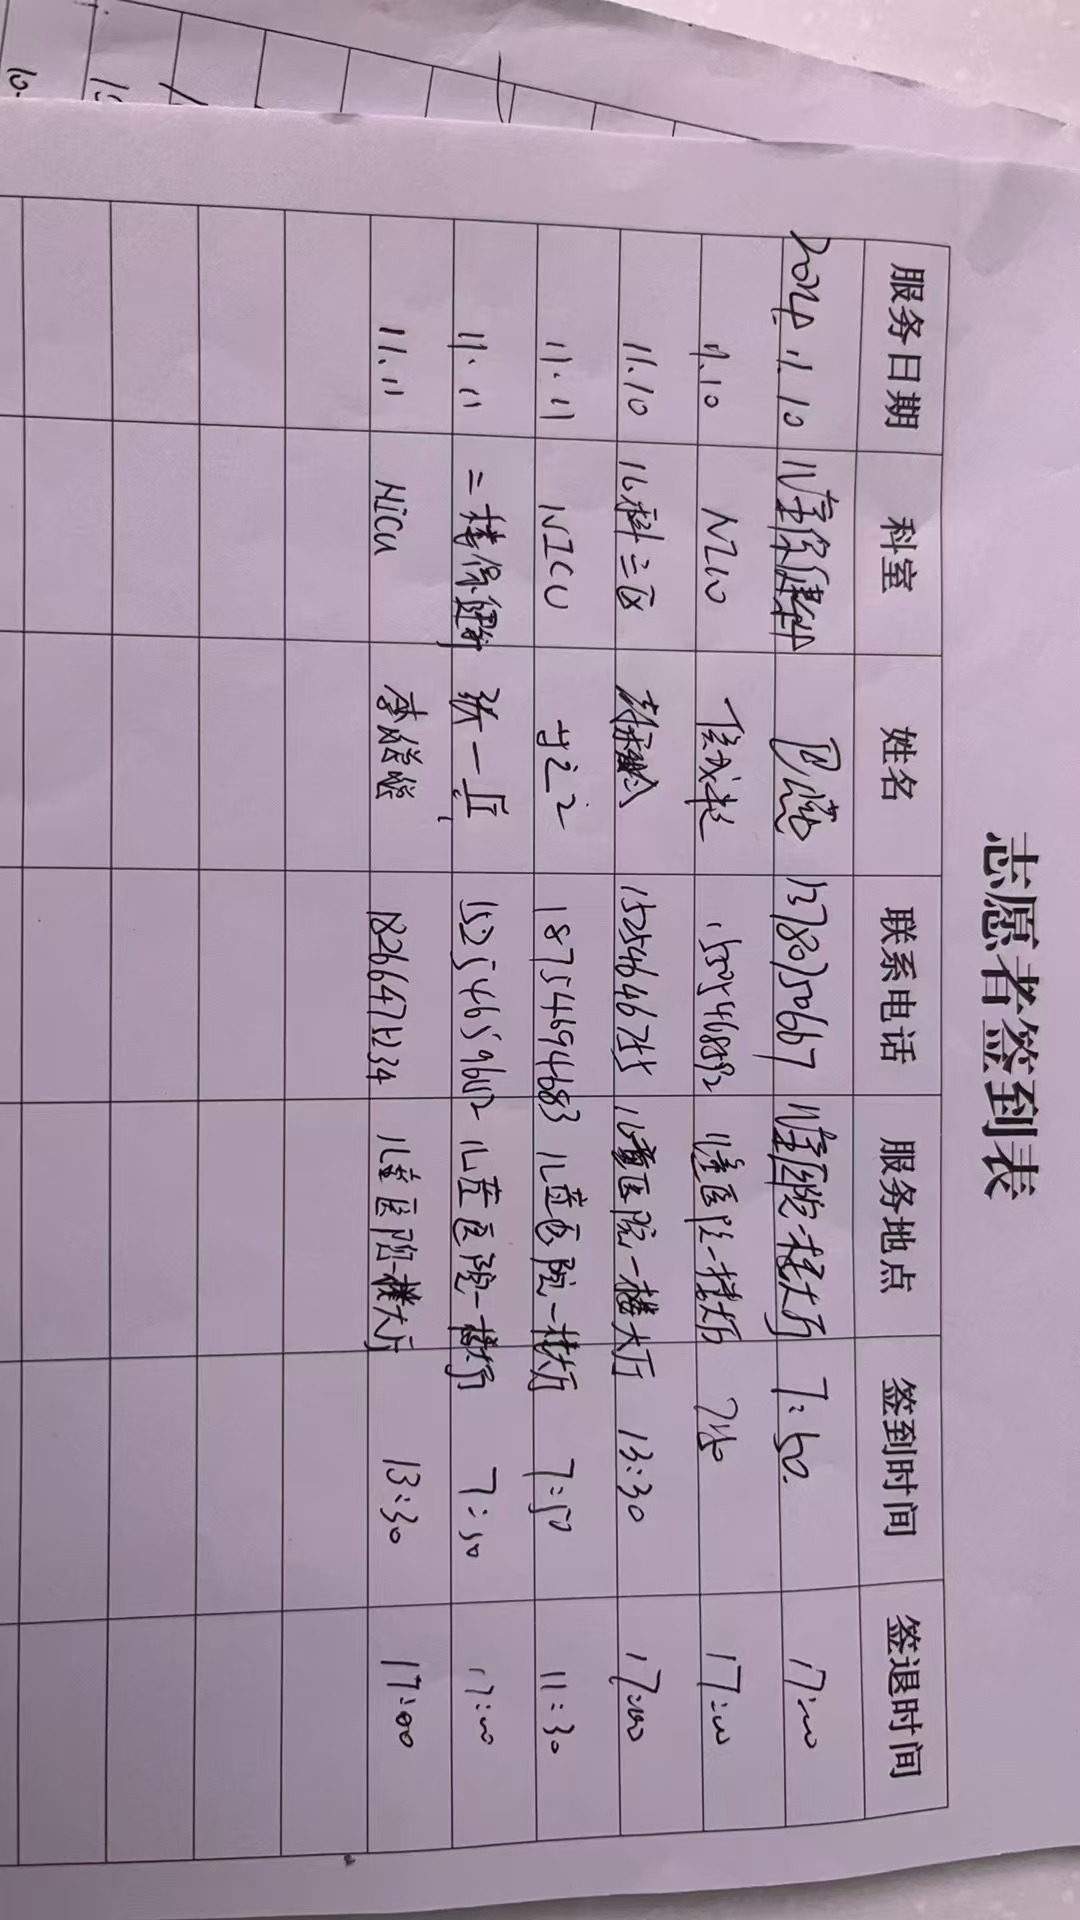 志愿者签到表
服务日期 科室 姓名 联系电话 服务地点 签到时间 签退时间
2024.11.10 儿童保健科 13780750667 儿童医院一楼大厅 7:50. 17:00
11.10 NICU 15505468592 儿童医院一楼大厅 7:50 17:00
11.10 儿科三区 15254646755 儿童医院一楼大厅 13:30 17:00
11.11 NICU 18754694683 儿童医院一楼大厅 7:50 11:30
11.11 二楼保健部 张一 15254659602 儿童医院一楼大厅 7:50 17:00
11.11 NiCu 李 儿童医院一楼大厅 13:30 17:00
10.